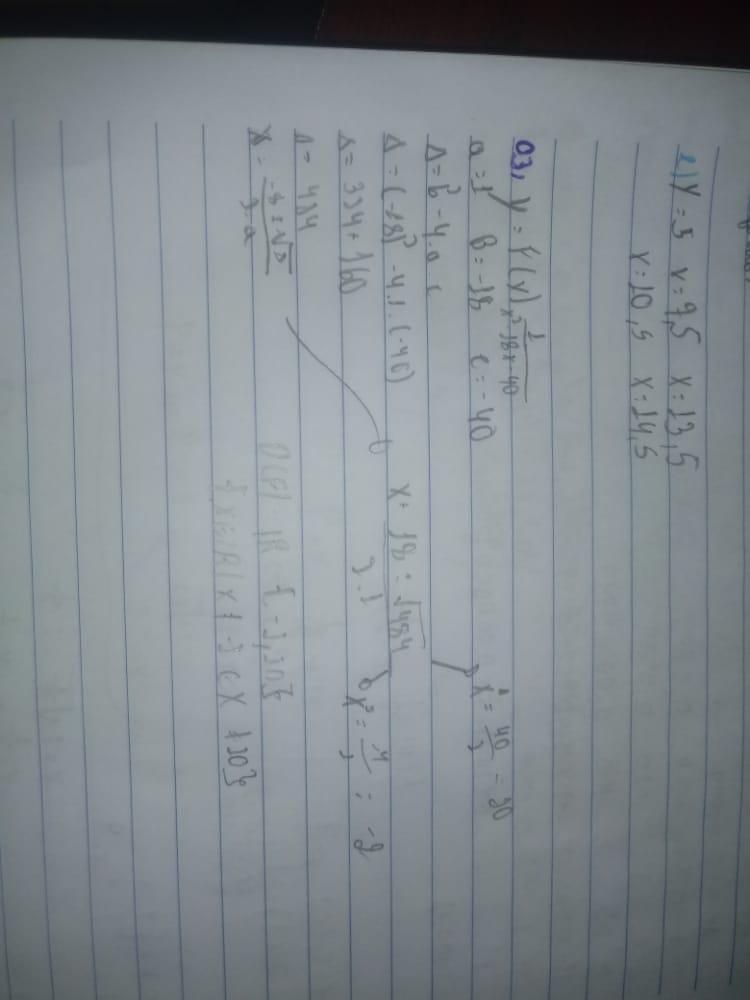 c) y = 5 x = 9,5 x = 13,5
x = 10,5 x = 14,5
03, y = f(x) 1/x²-18x-40
a = 1 B = -18 c = -40
Δ = b² - 4.a c
Δ = (-18)² - 4.1.(-40)
Δ = 324 + 160
Δ = 484
x = -b ± √Δ / 2.a
x = 18 ± √484 / 2.1
x¹ = 40/2 = 20
x² = -4/2 = -2
D(f) = IR - {-2,20}
{x ∈ IR / x ≠ -2 e X ≠ 20}